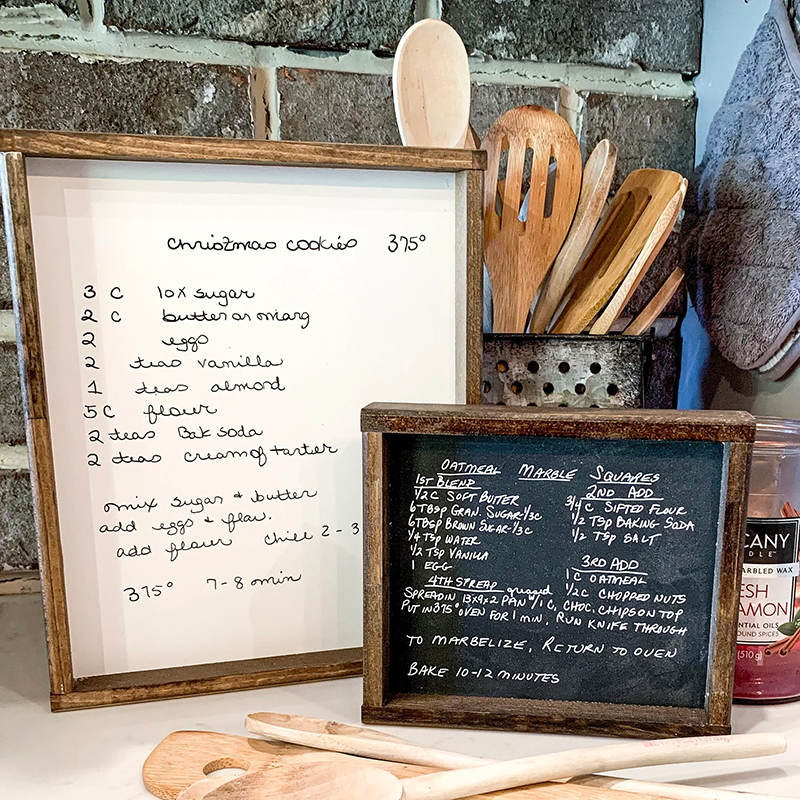 Christmas cookies 375°
3 C 10x sugar
2 C butter or marg
2 eggs
2 teas vanilla
1 teas almond
5 C flour
2 teas Bak soda
2 teas cream of tarter
mix sugar & butter
add eggs & flav.
add flour Chill 2 - 3
375° 7-8 min
OATMEAL MARBLE SQUARES
1ST BLEND
1/2 C SOFT BUTTER
6 TBSP GRAN. SUGAR-1/3C
6 TBSP BROWN SUGAR-1/3C
1/4 TSP WATER
1/2 TSP VANILLA
1 EGG
2ND ADD
3/4 C SIFTED FLOUR
1/2 TSP BAKING SODA
1/2 TSP SALT
3RD ADD
1 C OATMEAL
1/2 C CHOPPED NUTS
4TH SPREAD
SPREAD IN greased 13x9x2 PAN W/1 C. CHOC. CHIPS ON TOP
PUT IN 375° OVEN FOR 1 MIN, RUN KNIFE THROUGH
TO MARBELIZE, RETURN TO OVEN
BAKE 10-12 MINUTES
CANY
DLE
ARBLED WAX
ESH
AMON
ENTIAL OILS
OUND SPICES
(510g)